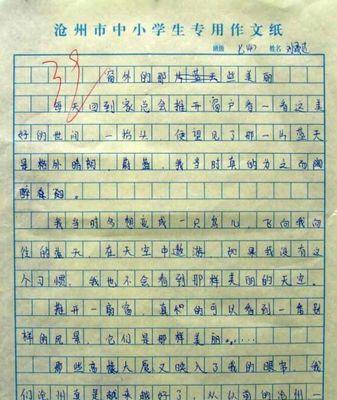 沧州市中小学生专用作文纸
班级 姓名
38
窗外的那片蓝天些美丽
每天回到家总会推开窗户看一看这美
好的世间 一抬头 便望见了那一片蓝天
是格外晴朗 蔚蓝 我当时真的为之而陶
醉
我当时多想变成一只鸟儿 飞向我向
往的蓝天 在天空中遨游 如果我没有这
个习惯 我也不会看到那样美丽的天空
推开一扇窗 真的可以看到一番别
样的风景 它们是那样美丽……
那些高楼大厦又映入了我的眼帘 我
们沧州真是越来越好了 从以前的沧州一